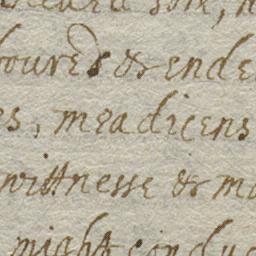 boures & ende
es, meadicens
wittnesse & mo
might conduc